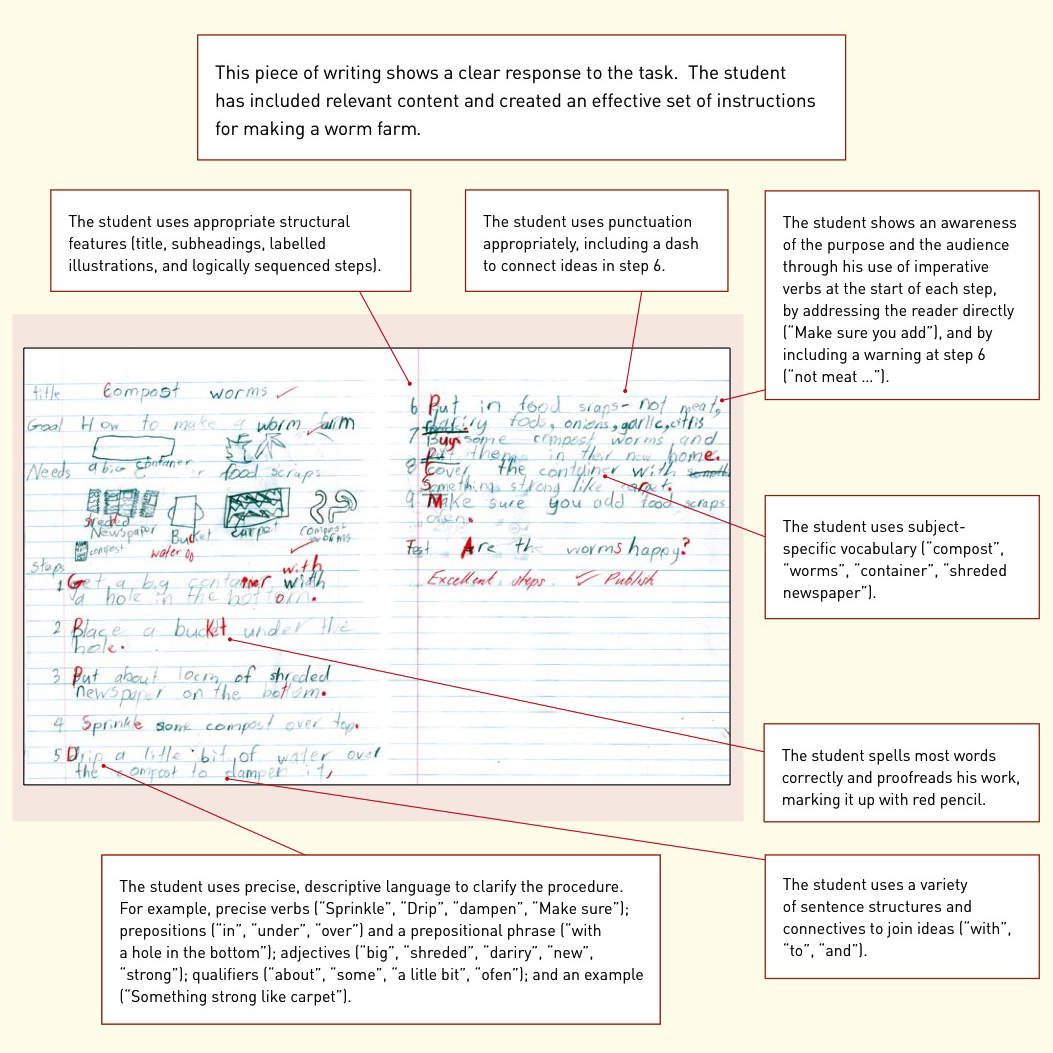 This piece of writing shows a clear response to the task. The student
has included relevant content and created an effective set of instructions
for making a worm farm.
The student uses appropriate structural
features (title, subheadings, labelled
illustrations, and logically sequenced steps).
The student uses punctuation
appropriately, including a dash
to connect ideas in step 6.
The student shows an awareness
of the purpose and the audience
through his use of imperative
verbs at the start of each step,
by addressing the reader directly
(“Make sure you add”), and by
including a warning at step 6
(“not meat ...”).
title Compost worms
Goal How to make a worm farm
a big container
Needs food scraps
shreded
Newspaper
Bucket
carpet
compost
worms
compost
water
Steps
with
1 Get a big container width
a hole in the bottom.
2 Place a bucket under the
hole.
3 Put about 10cm of shreded
newspaper on the bottom.
4 Sprinkle some compost over top.
5 Drip a litle bit of water over
the compost to dampen it,
6 Put in food sraps - not meat,
dariry food, onions, garlic, citris
foods.
7 Buy some compost worms and
put them in their new home.
8 Cover the container with
Something strong like carpet.
9 Make sure you add food scraps
ofen.
Test Are the worms happy?
Excellent steps. Publish
The student uses subject-
specific vocabulary (“compost”,
“worms”, “container”, “shreded
newspaper”).
The student spells most words
correctly and proofreads his work,
marking it up with red pencil.
The student uses precise, descriptive language to clarify the procedure.
For example, precise verbs (“Sprinkle”, “Drip”, “dampen”, “Make sure”);
prepositions (“in”, “under”, “over”) and a prepositional phrase (“with
a hole in the bottom”); adjectives (“big”, “shreded”, “dariry”, “new”,
“strong”); qualifiers (“about”, “some”, “a litle bit”, “ofen”); and an example
(“Something strong like carpet”).
The student uses a variety
of sentence structures and
connectives to join ideas (“with”,
“to”, “and”).